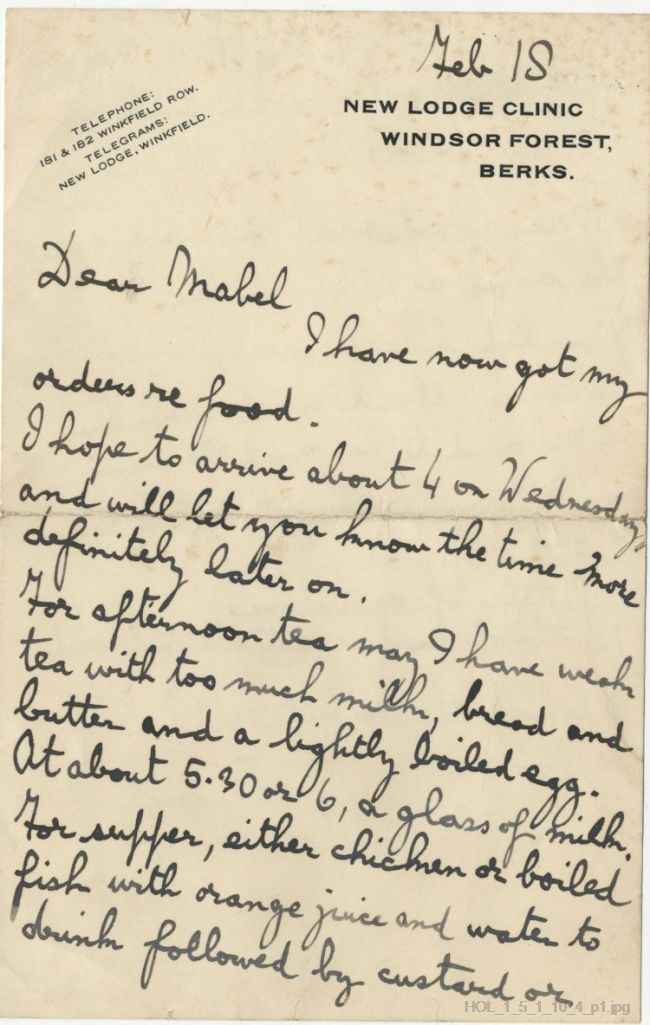 Feb 18
TELEPHONE:
181 & 182 WINKFIELD ROW.
TELEGRAMS:
NEW LODGE, WINKFIELD.
NEW LODGE CLINIC
WINDSOR FOREST,
BERKS.
Dear Mabel
I have now got my
orders re food.
I hope to arrive about 4 on Wednesday,
and will let you know the time more
definitely later on.
For afternoon tea may I have weak
tea with too much milk, bread and
butter and a lightly boiled egg.
At about 5.30 or 6, a glass of milk.
For supper, either chicken or boiled
fish with orange juice and water to
drink followed by custard or
HOL_1_5_1_10_4_p1.jpg